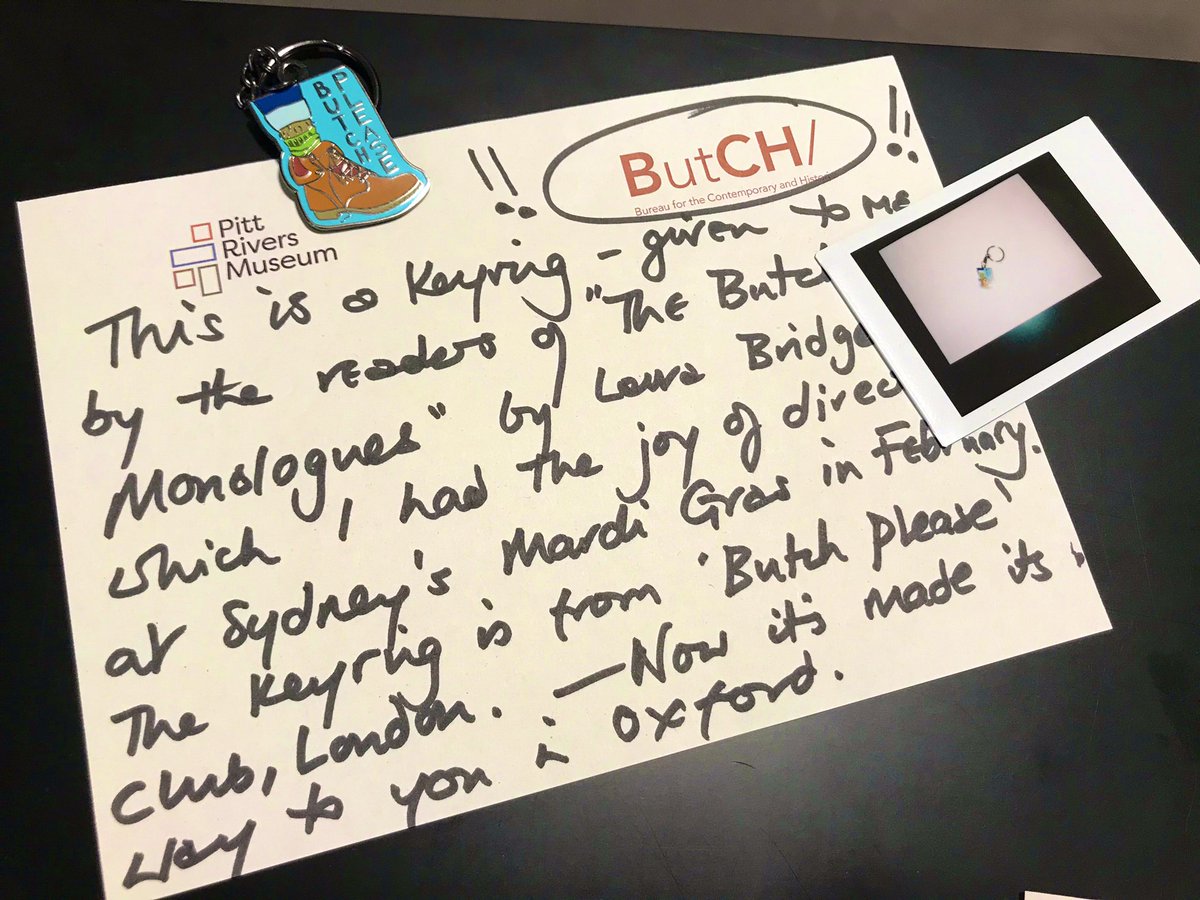 PLEASE
BUTCH
!!
ButCH/
!!
Bureau for the Contemporary and Histori
Pitt
Rivers
Museum
This is a Keyring - given to me
by the readers of "The Butch
Monologues" by Laura Bridge
which I had the joy of direc
at Sydney's Mardi Gras in February.
The Keyring is from 'Butch please'
club, London. — Now it's made its
way to you in Oxford.